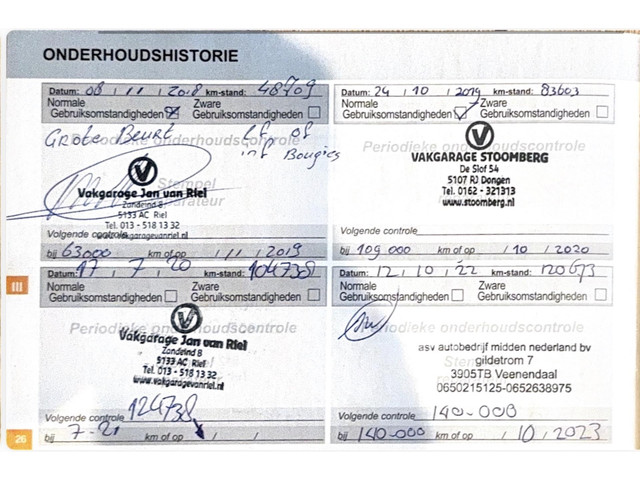 ONDERHOUDSHISTORIE
Datum: 08 / 11 / 2018 km-stand: 48709
Normale Gebruiksomstandigheden
Zware Gebruiksomstandigheden
Grote Beurt
Bougies
Periodieke onderhoudscontrole
Vakgarage Jan van Riel
Zandeind 8
5133 AC Riel
Tel. 013 - 518 13 32
www.vakgaragevanriel.nl
Volgende controle
bij 63000 km of op / 11 / 2019
Datum: 24 / 10 / 2019 km-stand: 83603
Normale Gebruiksomstandigheden
Zware Gebruiksomstandigheden
Periodieke onderhoudscontrole
VAKGARAGE STOOMBERG
De Slof 54
5107 RJ Dongen
Tel. 0162 - 321313
www.stoomberg.nl
Volgende controle
bij 109000 km of op / 10 / 2020
III
Datum: 17 / 7 / 20 km-stand: 104738
Normale Gebruiksomstandigheden
Zware Gebruiksomstandigheden
Periodieke onderhoudscontrole
Vakgarage Jan van Riel
Zandeind 8
5133 AC Riel
Tel. 013 - 518 13 32
www.vakgaragevanriel.nl
Volgende controle 124738
bij 7-21 km of op / /
Datum: 12 / 10 / 22 km-stand: 120673
Normale Gebruiksomstandigheden
Zware Gebruiksomstandigheden
Periodieke onderhoudscontrole
asv autobedrijf midden nederland bv
gildetrom 7
3905TB Veenendaal
0650215125-0652638975
Volgende controle 140-000
bij 140-000 km of op / 10 / 2023
26